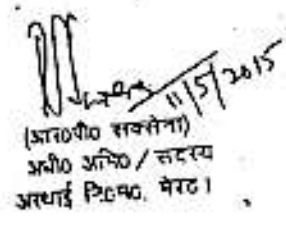 11/5/2015
(आर०पी० सक्सेना)
अधी० अभि० / सदस्य
अस्थाई नि०स०, मेरठ।